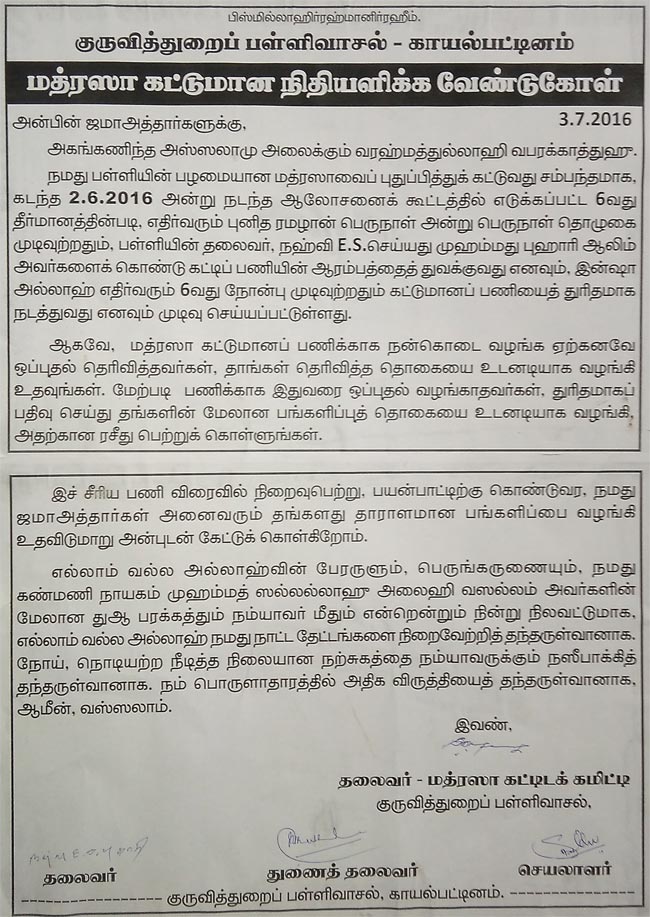 பிஸ்மில்லாஹிர்ரஹ்மானிர்ரஹீம்.
குருவித்துறைப் பள்ளிவாசல் - காயல்பட்டினம்
மத்ரஸா கட்டுமான நிதியளிக்க வேண்டுகோள்
அன்பின் ஜமாஅத்தார்களுக்கு, 3.7.2016
அகங்கணிந்த அஸ்ஸலாமு அலைக்கும் வரஹ்மத்துல்லாஹி வபரக்காத்துஹு.
நமது பள்ளியின் பழமையான மத்ரஸாவைப் புதுப்பித்துக் கட்டுவது சம்பந்தமாக,
கடந்த 2.6.2016 அன்று நடந்த ஆலோசனைக் கூட்டத்தில் எடுக்கப்பட்ட 6வது
தீர்மானத்தின்படி, எதிர்வரும் புனித ரமழான் பெருநாள் அன்று பெருநாள் தொழுகை
முடிவுற்றதும், பள்ளியின் தலைவர், நஹ்வி E.S.செய்யது முஹம்மது புஹாரி ஆலிம்
அவர்களைக் கொண்டு கட்டிப் பணியின் ஆரம்பத்தைத் துவக்குவது எனவும், இன்ஷா
அல்லாஹ் எதிர்வரும் 6வது நோன்பு முடிவுற்றதும் கட்டுமானப் பணியைத் துரிதமாக
நடத்துவது எனவும் முடிவு செய்யப்பட்டுள்ளது.
ஆகவே, மத்ரஸா கட்டுமானப் பணிக்காக நன்கொடை வழங்க ஏற்கனவே
ஒப்புதல் தெரிவித்தவர்கள், தாங்கள் தெரிவித்த தொகையை உடனடியாக வழங்கி
உதவுங்கள். மேற்படி பணிக்காக இதுவரை ஒப்புதல் வழங்காதவர்கள், துரிதமாகப்
பதிவு செய்து தங்களின் மேலான பங்களிப்புத் தொகையை உடனடியாக வழங்கி,
அதற்கான ரசீது பெற்றுக் கொள்ளுங்கள்.
இச் சீரிய பணி விரைவில் நிறைவுபெற்று, பயன்பாட்டிற்கு கொண்டுவர, நமது
ஜமாஅத்தார்கள் அனைவரும் தங்களது தாராளமான பங்களிப்பை வழங்கி
உதவிடுமாறு அன்புடன் கேட்டுக் கொள்கிறோம்.
எல்லாம் வல்ல அல்லாஹ்வின் பேரருளும், பெருங்கருணையும், நமது
கண்மணி நாயகம் முஹம்மத் ஸல்லல்லாஹு அலைஹி வஸல்லம் அவர்களின்
மேலான துஆ பரக்கத்தும் நம்யாவர் மீதும் என்றென்றும் நின்று நிலவட்டுமாக,
எல்லாம் வல்ல அல்லாஹ் நமது நாட்ட தேட்டங்களை நிறைவேற்றித் தந்தருள்வானாக.
நோய், நொடியற்ற நீடித்த நிலையான நற்சுகத்தை நம்யாவருக்கும் நஸீபாக்கித்
தந்தருள்வானாக. நம் பொருளாதாரத்தில் அதிக விருத்தியைத் தந்தருள்வானாக,
ஆமீன், வஸ்ஸலாம்.
இவண்,
தலைவர் - மத்ரஸா கட்டிடக் கமிட்டி
குருவித்துறைப் பள்ளிவாசல்,
தலைவர் துணைத் தலைவர் செயலாளர்
குருவித்துறைப் பள்ளிவாசல், காயல்பட்டினம்.